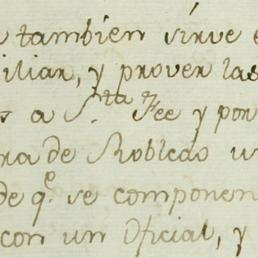 tambien sirve
iliar, y prover las
a S.ta Fee y por
ra de Robleas u
de q.e se componen
con un Oficial, y